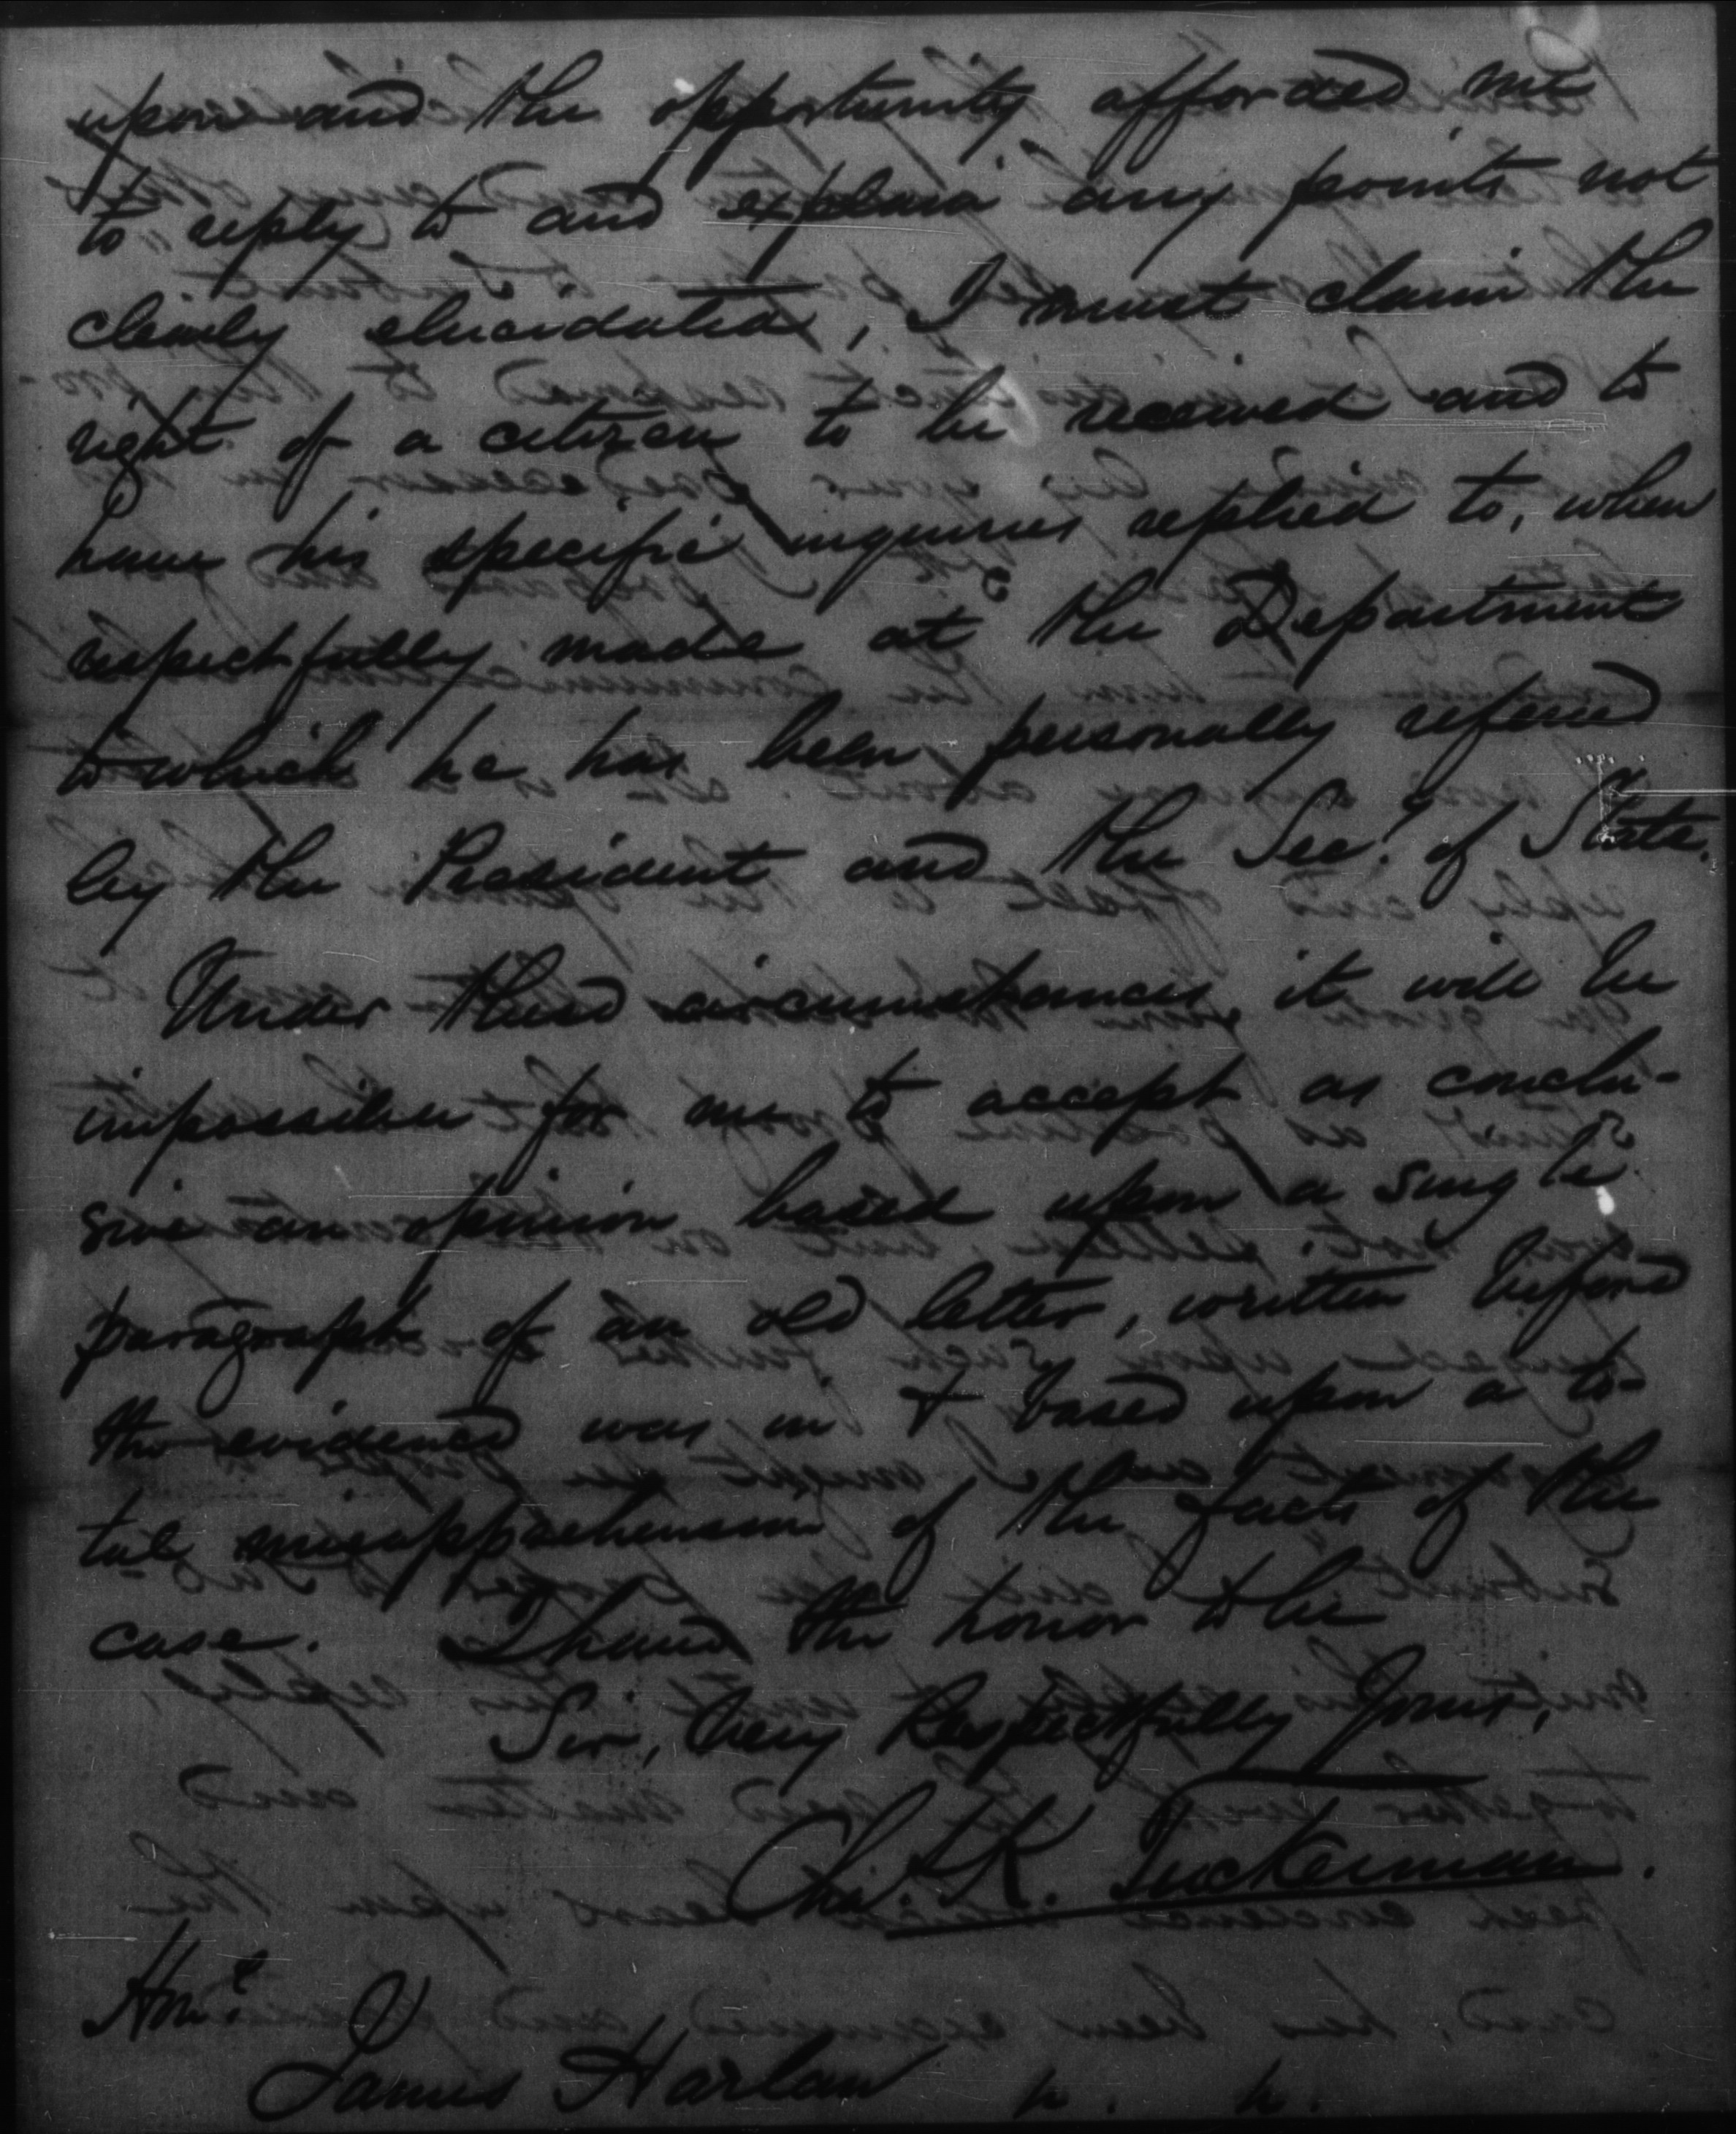 upon and the opportunity afforded me
to reply to and explain any points not
clearly elucidated, I must claim the
right of a citizen to be received and to
have his specific inquiries replied to, when
respectfully made at the Department
to which he has been personally refered
by the President and the Secy. of State.
Under these circumstances, it will be
impossible for me to accept as conclu-
sive an opinion based upon a single
paragraph of an old letter, written before
the evidence was in & based upon a to-
tal misapprehension of the facts of the
case. I have the honor to be
Sir, Very Respectfully Yours,
Chas. K. Tuckerman.
Honl.
James Harlan